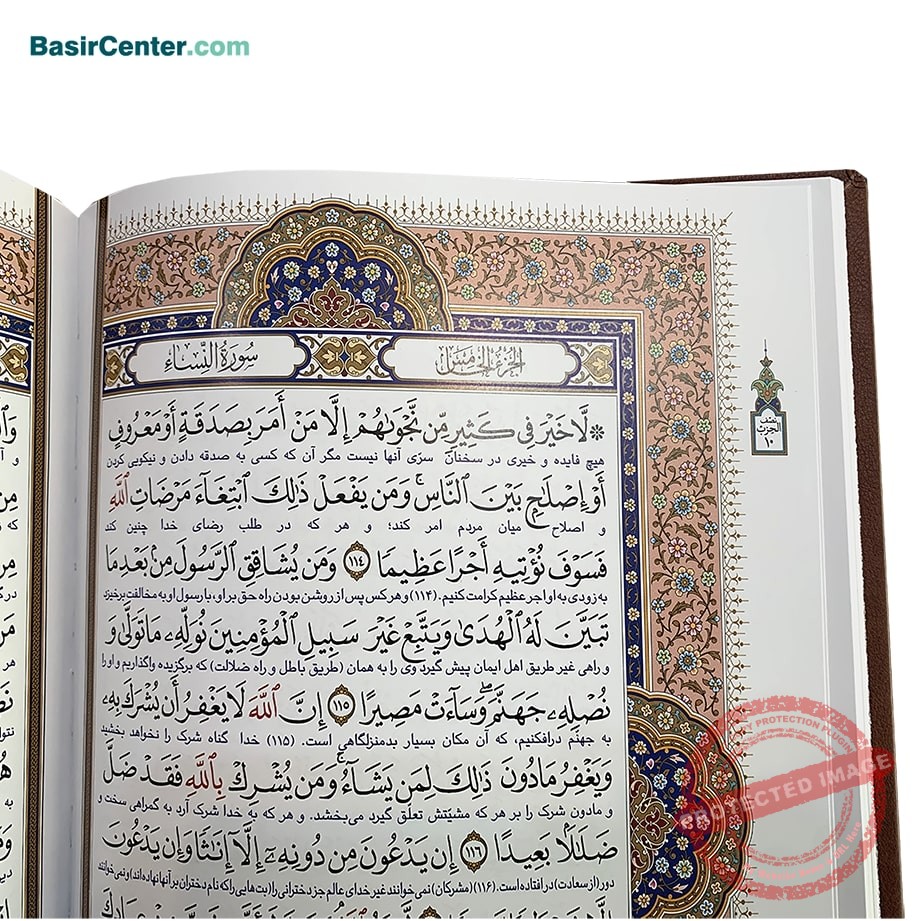 BasirCenter.com
سورة النساء
الجزء الخامس
نصف
الحزب
١٠
* لَّا خَيْرَ فِي كَثِيرٍ مِّن نَّجْوَاهُمْ إِلَّا مَنْ أَمَرَ بِصَدَقَةٍ أَوْ مَعْرُوفٍ
هیچ فایده و خیری در سخنان سرّی آنها نیست مگر آن که کسی به صدقه دادن و نیکویی کردن
أَوْ إِصْلَاحٍ بَيْنَ النَّاسِ ۚ وَمَن يَفْعَلْ ذَٰلِكَ ابْتِغَاءَ مَرْضَاتِ اللَّهِ
و اصلاح میان مردم امر کند؛ و هر که در طلب رضای خدا چنین کند
فَسَوْفَ نُؤْتِيهِ أَجْرًا عَظِيمًا ﴿١١٤﴾ وَمَن يُشَاقِقِ الرَّسُولَ مِن بَعْدِ مَا
به زودی به او اجر عظیم کرامت کنیم. (۱۱۴) و هر کس پس از روشن بودن راه حق بر او، با رسول او به مخالفت برخیزد
تَبَيَّنَ لَهُ الْهُدَىٰ وَيَتَّبِعْ غَيْرَ سَبِيلِ الْمُؤْمِنِينَ نُوَلِّهِ مَا تَوَلَّىٰ وَ
و راهی غیر طریق اهل ایمان پیش گیرد وی را به همان (طریق باطل و راه ضلالت) که برگزیده واگذاریم و او را
نُصْلِهِ جَهَنَّمَ ۖ وَسَاءَتْ مَصِيرًا ﴿١١٥﴾ إِنَّ اللَّهَ لَا يَغْفِرُ أَن يُشْرَكَ بِهِ
به جهنّم درافکنیم، که آن مکان بسیار بدمنزلگاهی است. (۱۱۵) خدا گناه شرک را نخواهد بخشید
وَيَغْفِرُ مَا دُونَ ذَٰلِكَ لِمَن يَشَاءُ ۚ وَمَن يُشْرِكْ بِاللَّهِ فَقَدْ ضَلَّ
و مادون شرک را بر هر که مشیّتش تعلّق گیرد می‌بخشد. و هر که به خدا شرک آرد به گمراهی سخت و
ضَلَالًا بَعِيدًا ﴿١١٦﴾ إِن يَدْعُونَ مِن دُونِهِ إِلَّا إِنَاثًا وَإِن يَدْعُونَ
دور (از سعادت) در افتاده است. (۱۱۶) (مشرکان) نمی‌خوانند غیر خدای عالم جز دخترانی را (بت‌هایی را که نام دختران بر آنها نهاده‌اند) و نمی‌خوانند
PROTECTED IMAGE